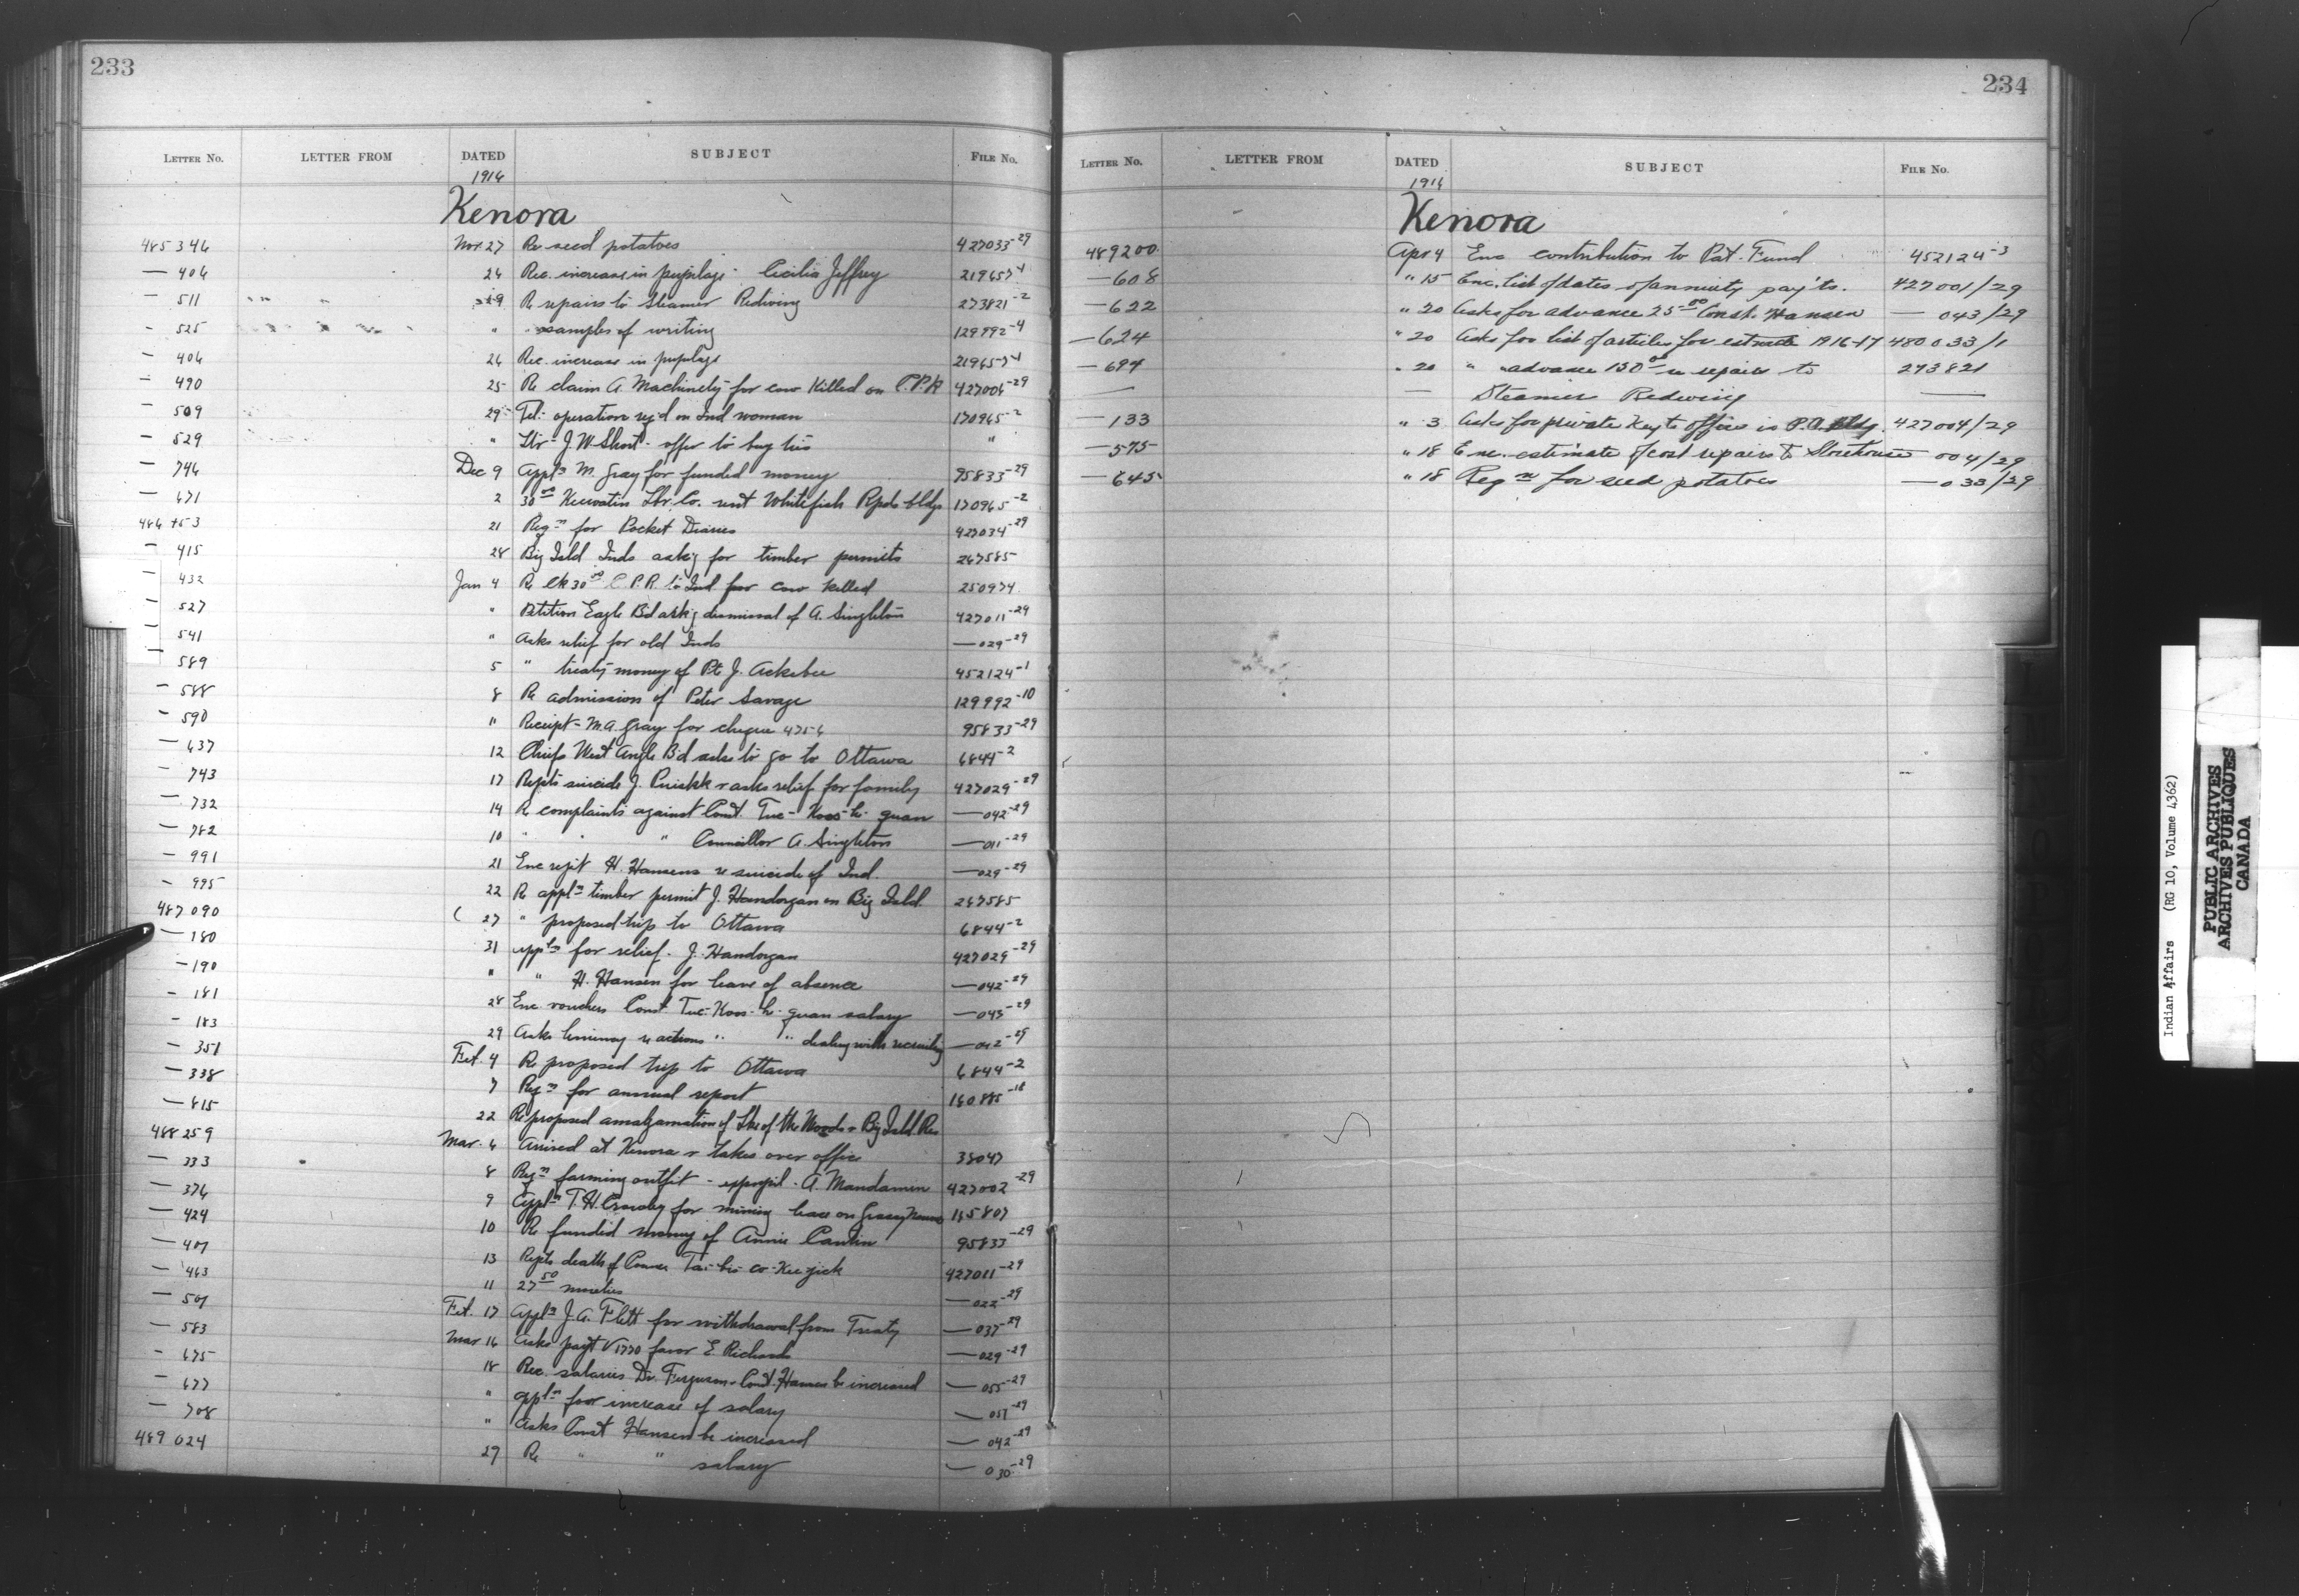 233
LETTER NO. LETTER FROM DATED SUBJECT FILE NO.
1916
Kenora
485346 Nov 27 Re seed potatoes 427033-29
— 406 26 Rec. increase in pupilage - Cecilia Jeffrey 219657-1
— 511 " " " 29 Re repairs to Steamer Redwing 273821-2
- 525 " " samples of writing 129992-4
— 406 26 Rec. increase in pupilage 219657-1
— 490 25 Re claim A. Machinely for cow killed on C.P.R 427006-29
— 509 29 Tel: operation req'd on Ind woman 170965-2
— 529 " Ltr - J.W. Short - offer to buy ties "
— 746 Dec 9 Appln M. Gray for funded money 95833-29
— 671 2 30 00 Keewatin Lbr. Co. rent Whitefish Rpds bldgs 170965-2
486 21 Reqn for Pocket Diaries 427034-29
— 415 28 Big Isld Inds ask'g for timber permits 267585
— 432 Jan 4 Re Ck 30 00 C.P.R. to Ind for cow killed 250974
— 527 " Petition Eagle Bd ask'g dismissal of A. Singleton 427011-29
— 541 " Asks relief for old Inds — 029-29
— 589 5 " treaty money of Pt J. Ackabee 452124-1
— 588 8 Re admission of Peter Savage 129992-10
— 590 " Receipt - M.A. Gray for cheque 4756 95833-29
— 637 12 Chiefs West Angle Bd asks to go to Ottawa 6844-2
— 743 17 Repts suicide J. & asks relief for family 427029-29
— 732 14 Re complaints against Const. Tue-Koos-h- guan — 042-29
— 782 10 " " " Councillor A. Singleton — 011-29
— 991 21 Enc rept H. Hansens re suicide of Ind. — 029-29
— 995 22 Re appln timber permit J. Handorgan on Big Isld. 267585
487090 27 " proposed trip to Ottawa 6844-2
— 180 31 appln for relief. J. Handorgan 427029-29
— 190 " " H. Hansen for leave of absence — 042-29
— 181 28 Enc vouchers Const. Tue-Koos-h- guan salary — 043-29
— 183 29 Asks re actions " " dealing with recruiting — 042-29
— 351 Feb. 4 Re proposed trip to Ottawa 6844-2
— 338 7 Reqn for annual report 160885-18
— 815 22 Re proposed amalgamation of Lke of the Woods & Big Isld. Res
488259 Mar. 6 Arrived at Kenora & takes over office 38047
— 333 8 Reqn farming outfit - expupil - A. Mandamin 427002-29
— 376 9 Appln T.H. for mining lease on Grassy 165807
— 424 10 Re funded money of Annie Cantin 95833-29
— 407 13 Repts death of 427011-29
— 463 11 27 50 — 022-29
— 507 Feb. 17 Appln J.A. Flett for withdrawal from Treaty — 037-29
— 583 Mar 16 Asks payt V 1770 favor E. Richards — 029-29
— 675 18 Rec. salaries Dr. Ferguson & Const. Hansen be increased — 055-29
— 677 " appln for increase of salary — 057-29
— 708 " Asks Const Hansen be increased — 042-29
489024 29 Re " " salary — 030-29
234
LETTER NO. LETTER FROM DATED SUBJECT FILE NO.
1916
Kenora
489200 Apr 4 Enc contribution to Pat. Fund 452124-3
— 608 " 15 Enc. list of dates of annuity pay'ts. 427001/29
— 622 " 20 Asks for advance 25 00 Const. Hansen — 043/29
— 624 " 20 Asks for list of articles for estimate 1916-17 480033/1
— 694 " 20 " advance 150 00 re repairs to 273821
— — Steamer Redwing —
— 133 " 3 Asks for private key to office in P.O. Bldg. 427004/29
— 575 " 18 Enc. estimate of cost repairs to Storehouse 004/29
— 645 " 18 Reqn for seed potatoes — 033/29
Indian Affairs (RG 10, Volume 4362)
PUBLIC ARCHIVES
ARCHIVES PUBLIQUES
CANADA